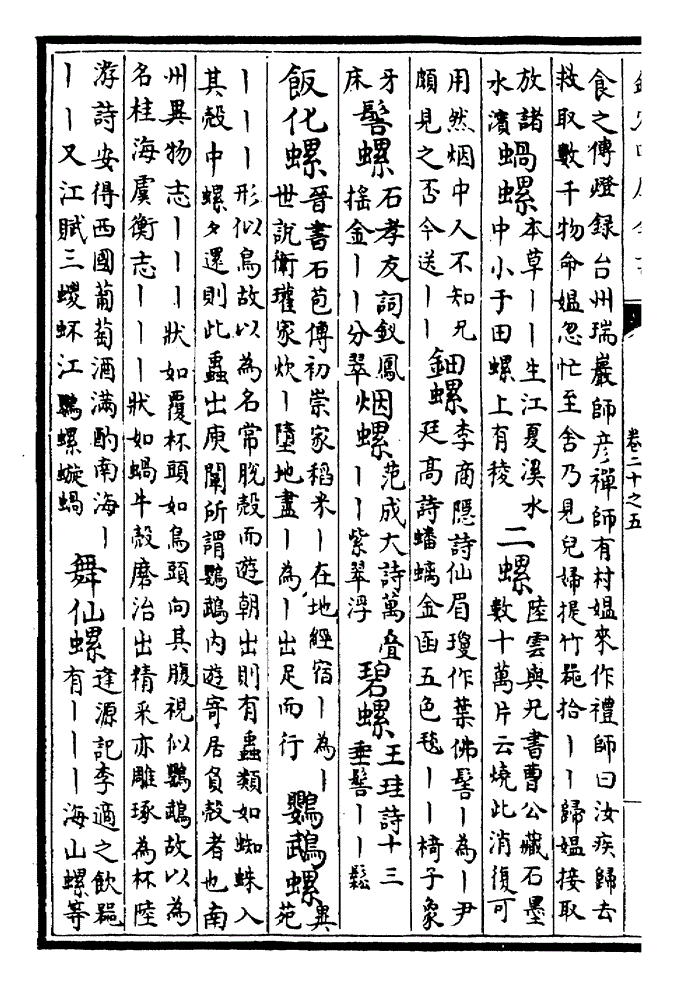 卷二十之五
食之傳燈錄台州瑞巖師彥禪師有村媼來作禮師曰汝疾歸去
救取數千物命媼忽忙至舍乃見兒婦提竹器拾丨丨歸媼接取
放諸
水濱
蝸螺
本草丨丨生江夏溪水
中小于田螺上有稜
二螺
陸雲與兄書曹公藏石墨
數十萬片云燒此消復可
用然烟中人不知兄
頗見之否今送丨丨
鈿螺
李商隱詩仙眉瓊作葉佛髻丨為丨尹
廷高詩蟠螭金函五色毯丨丨椅子象
牙
床
髻螺
石孝友詞釵鳳
搖金丨丨分翠
烟螺
范成大詩萬疊
丨丨紫翠浮
碧螺
王珪詩十三
垂髻丨丨鬆
飯化螺
晉書石苞傳初崇家稻米丨在地經宿丨為丨
世說衛瓘家炊丨墮地盡丨為丨出足而行
鸚鵡螺
異
苑
丨丨丨形似鳥故以為名常脫殼而遊朝出則有蟲類如蜘蛛入
其殼中螺夕還則此蟲出庾闡所謂鸚鵡內遊寄居負殼者也南
州異物志丨丨丨狀如覆杯頭如鳥頭向其腹視似鸚鵡故以為
名桂海虞衡志丨丨丨狀如蝸牛殼磨治出精采亦雕琢為杯陸
游詩安得西國葡萄酒滿酌南海丨
丨丨又江賦三蝬蚌江鸚螺蜁蝸
舞仙螺
逢源記李適之飲器
有丨丨丨海山螺等